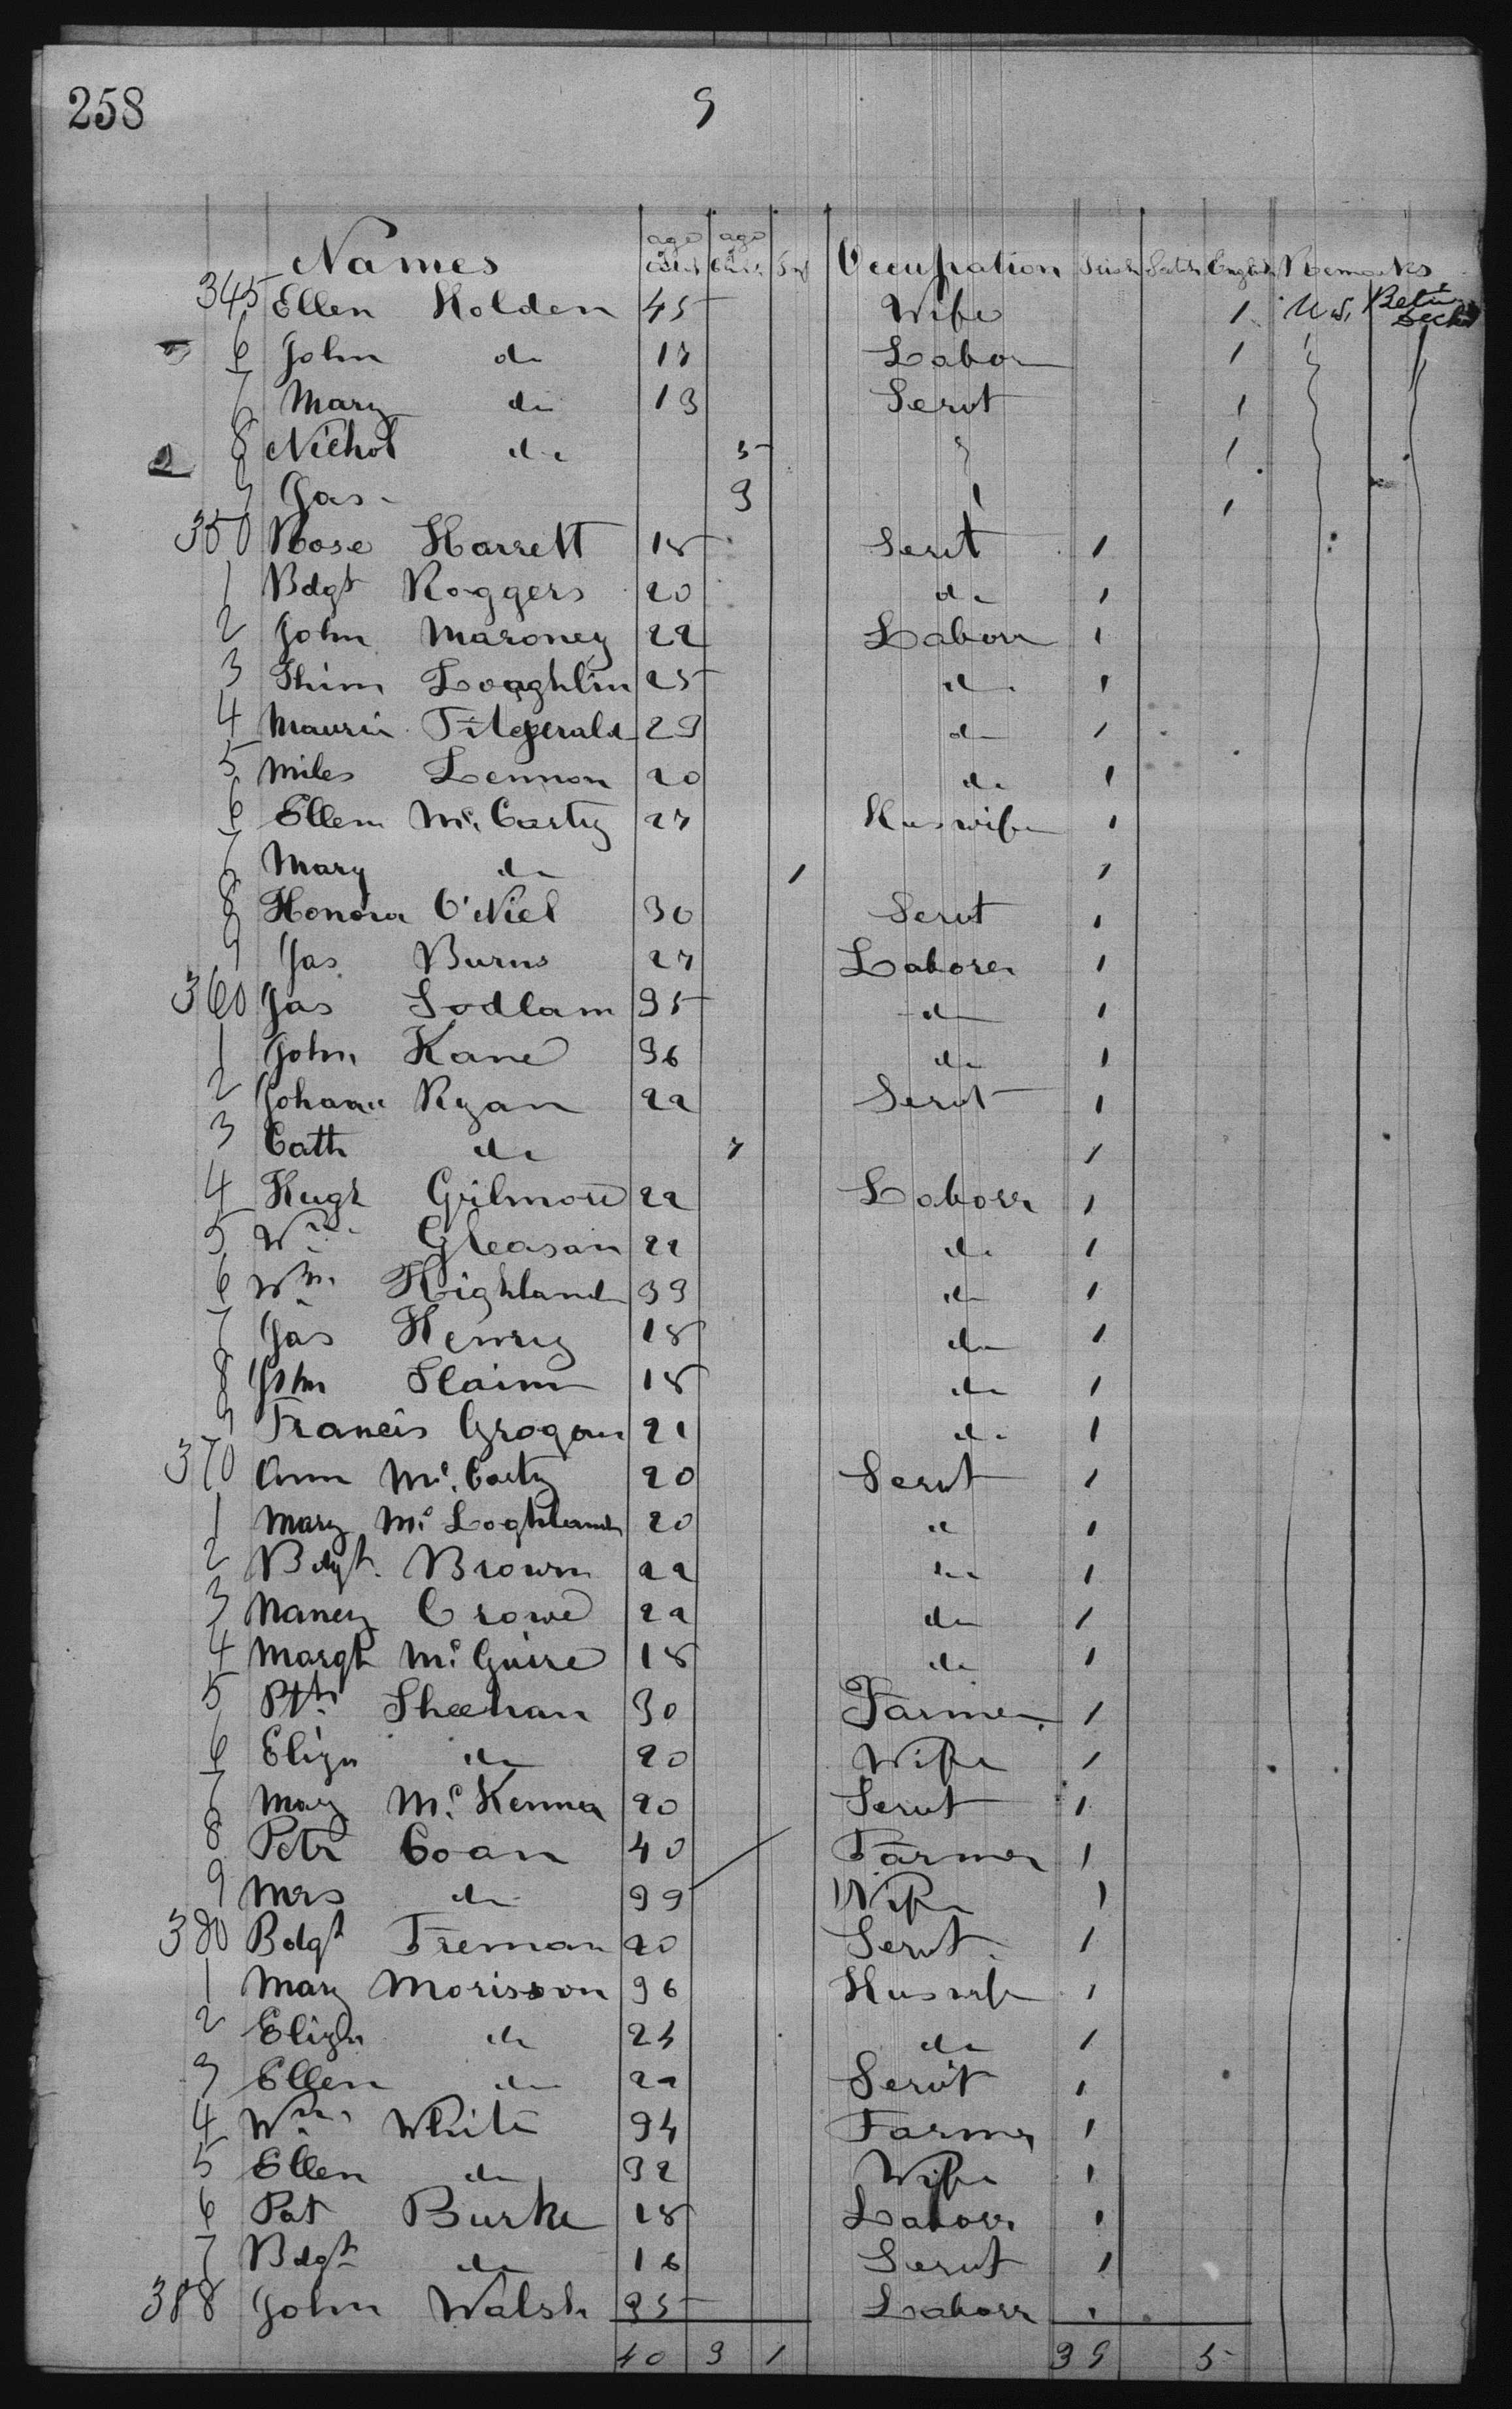 258 9
Names age Adult age Child Inf Occupation Irish Scotch English Remarks
345 Ellen Holden 45 Wife 1 U.S.
6 John do 17 Labor 1
7 Mary do 13 Servt 1
8 Nichol do 5 1
9 Jas 9 1
350 Rose Harrett 18 Servt 1
1 Bdgt Roggers 20 do 1
2 John Maroney 22 Laborr 1
3 Thim Loaghlin 25 do 1
4 Mauric Fitzgerald 23 do 1
5 Miles Lennon 20 do 1
6 Ellen Mc. Carty 27 Huswife 1
7 Mary do 1 1
8 Honora O'Niel 30 Servt 1
9 Jas Burns 27 Laborer 1
360 Jas Sodlam 35 do 1
1 John Kane 36 do 1
2 Johana Ryan 22 Servt 1
3 Cath do 7 1
4 Hugh Gilmore 22 Laborr 1
5 Wm Gleason 22 do 1
6 Wm Highland 33 do 1
7 Jas Henry 18 do 1
8 John Slaim 18 do 1
9 Francis Grogan 21 do 1
370 Ann Mc. Carty 20 Servt 1
1 Mary Mc Loghland 20 do 1
2 Bdgt. Brown 22 do 1
3 Nancy Crowe 22 do 1
4 Margt Mc Guire 18 do 1
5 Ptk Sheehan 30 Farmer 1
6 Eliza do 20 Wife 1
7 Mary Mc Kenna 20 Servt 1
8 Petr Coan 40 Farmer 1
9 Mrs do 39 Wife 1
380 Bdgt Freman 20 Servt. 1
1 Mary Morisson 36 Huswife 1
2 Eliza do 24 do 1
3 Ellen do 22 Servt 1
4 Wm White 34 Farmer 1
5 Ellen do 32 Wife 1
6 Pat Burke 18 Laborr 1
7 Bdgt do 16 Servt 1
388 John Walsh 25 Laborr 1
40 3 1 39 5